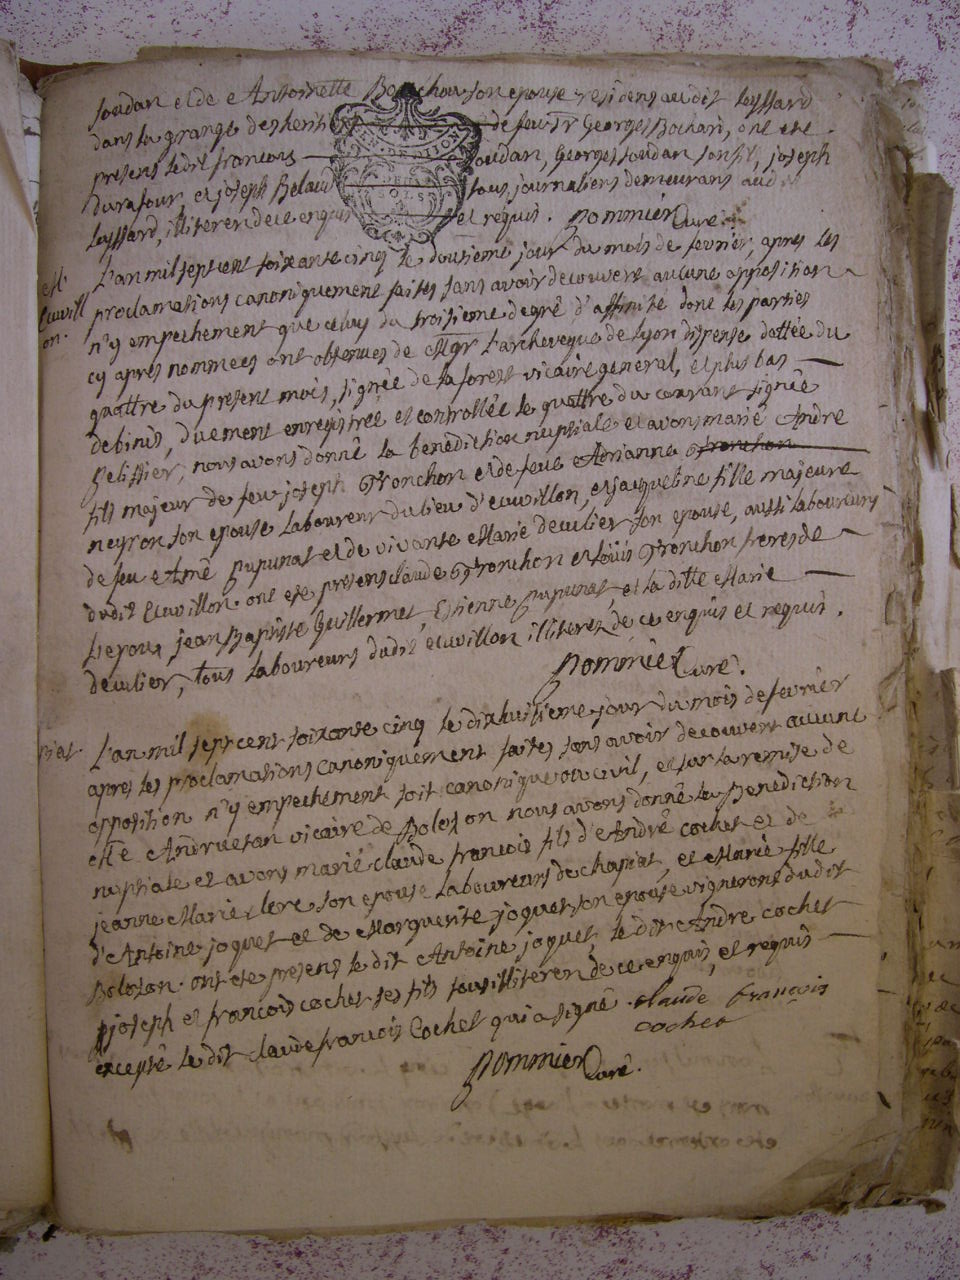 soudan et de Antoinette Bouchou son epouse residens audit Loyssard
dans la grange des herit de feu Sr George Bochard, ont ete
presens ledit francois soudan, George soudan son fils, joseph
Durafour, et joseph Belaud tous journaliers demeurans audit
Loyssard, illiterez de ce enquis et requis. pommier Curé
L'an mil sept cent soixante cinq le dousieme jour du mois de fevrier, apres les
proclamations canoniquement faites sans avoir decouvert aucune apposition
n'y empechement que celuy du troisieme degré d'affinité dont les parties
cy apres nommees ont obtenues de Mgr L'archeveque de Lyon dispense dattée du
quattre du present mois, signée de Laforest vicaire general, et plus bas
debinis, duement enregistrée et controllée le quattre du courant signée
pelissier, nous avons donné la benediction nuptiale et avons marié André
fils majeur de feu joseph Tronchon et de feue Adrianne Tronchon
neyron son epouse Laboureur du lieu d'euvillon, et jacqueline fille majeure
de feu Amé pupunat et de vivante Marie deculier son epouse, aussi Laboureurs
dudit Euvillon. ont ete presens claude Tronchon et Loüis Tronchon freres de
L'epoux, jean Baptiste Guillermet, Etienne pupunat, et la ditte Marie
deculier, tous Laboureurs dudit euvillon illiterez de ce enquis et requis.
pommier Curé.
L'an mil sept cent soixante cinq le dixhuitieme jour du mois de fevrier
apres les proclamations canoniquement faites sans avoir decouvert aucune
opposition n'y empechement soit canonique ou civil, et sur la remise de
Mre Andruetan vicaire de Bolozon nous avons donné la Benediction
nuptiale et avons marié claude francois fils d'André cochet et de
jeanne Marie clere son epouse Laboureurs de chapiat, et Marie fille
d'Antoine joquet et de Marguerite joquet son epouse vignerons dudit
Bolozon. ont ete presens le dit Antoine joquet, le dit André cochet
joseph et francois cochet ses fils tous illiterez de ce enquis, et requis
excepté le dit claude francois Cochet qui a signé. claude françois
cochet
pommier Curé.